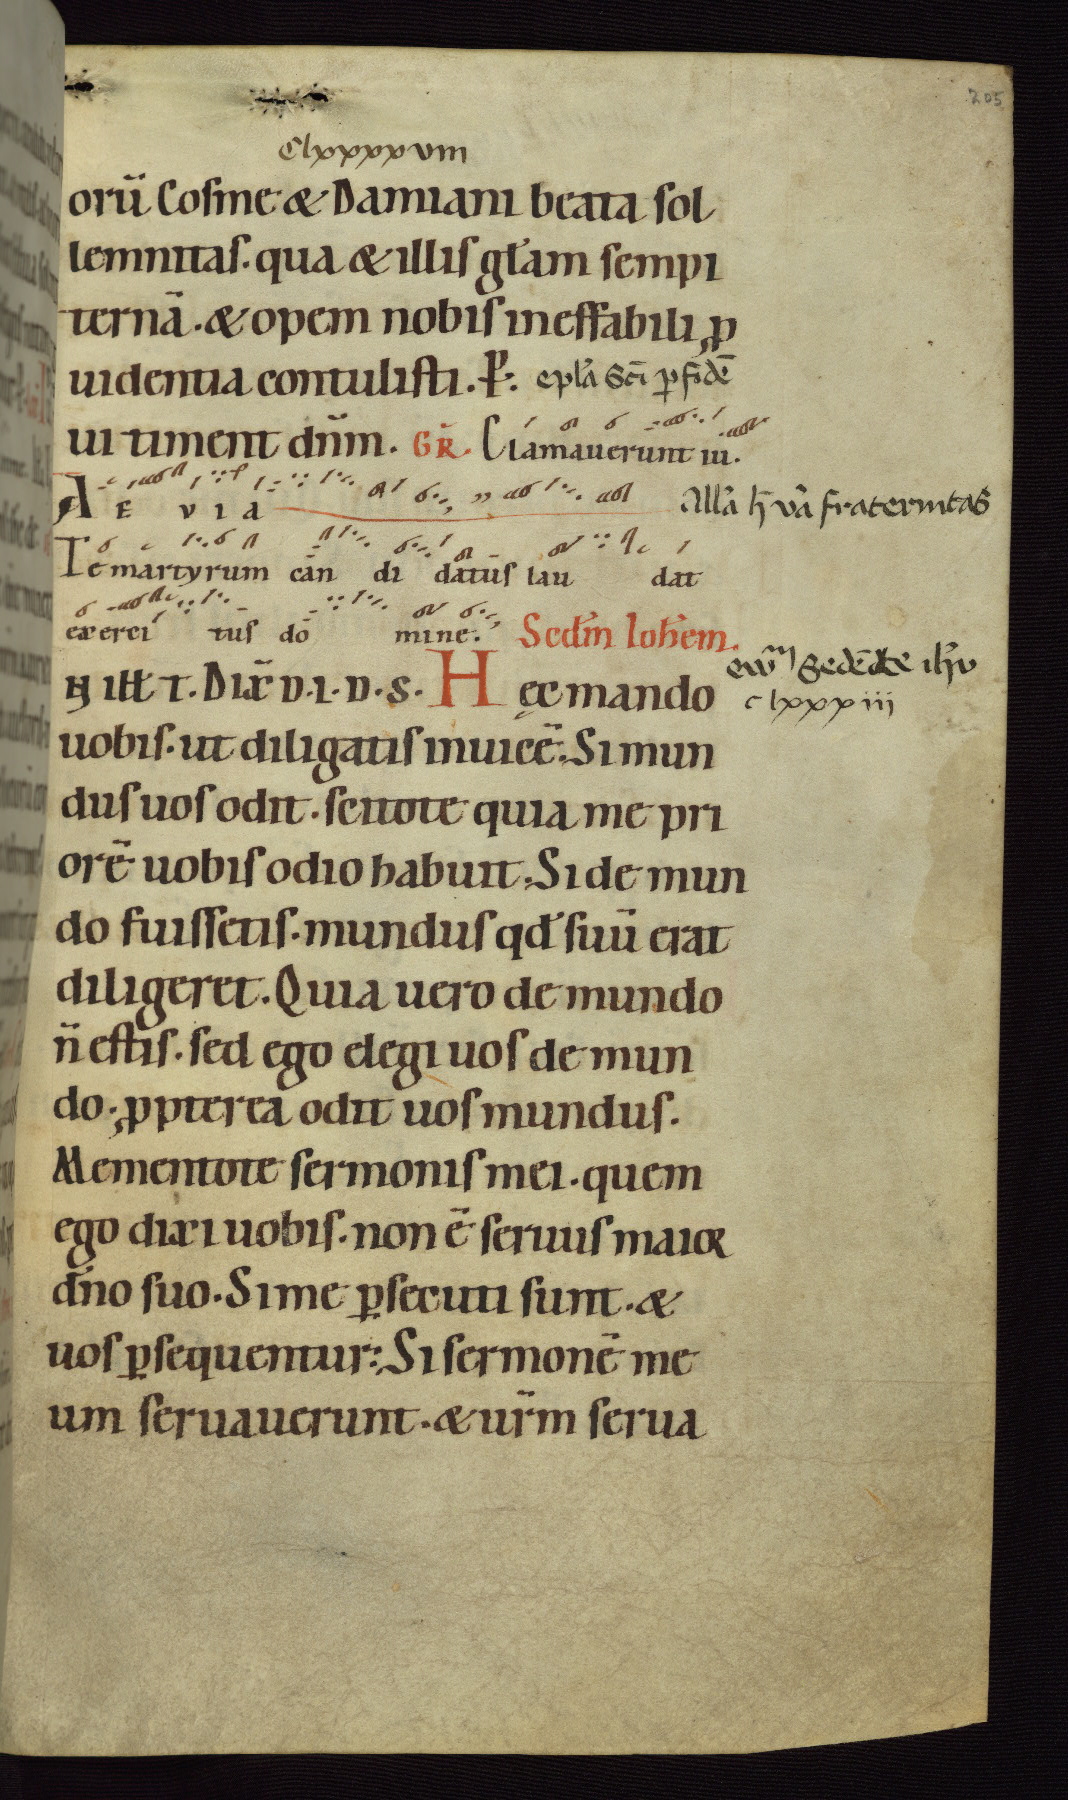 205
Clxxxxvm
orū Cosme & Damiani beata sol
lemnitas. qua & illis gl̄am sempi
ternā. & opem nobis ineffabili p
uidentia contulisti. P. epl̄a sc̄i p fidē
ui timent dn̄m. GR̄. Clamauerunt iii.
AEVIA All̄a h̄ vā fraternitas
Te martyrum can di datus lau dat
exerci tus do mine. Scd̄m Ioh̄em.
N ILL T. DIX̄ D. I. D. S. Hęc mando
ew̄m sedēte ih̄v
clxxxiii
uobis. ut diligatis inuicē. Si mun
dus uos odit. scitote quia me pri
orē uobis odio habuit. Si de mun
do fuissetis. mundus qd̄ suū erat
diligeret. Quia uero de mundo
n̄ estis. sed ego elegi uos de mun
do. ppterea odit uos mundus.
Mementote sermonis mei. quem
ego dixi uobis. non ē seruus maior
dn̄o suo. Si me psecuti sunt. &
uos psequentur. Si sermonē me
um seruauerunt. & ur̄m serua